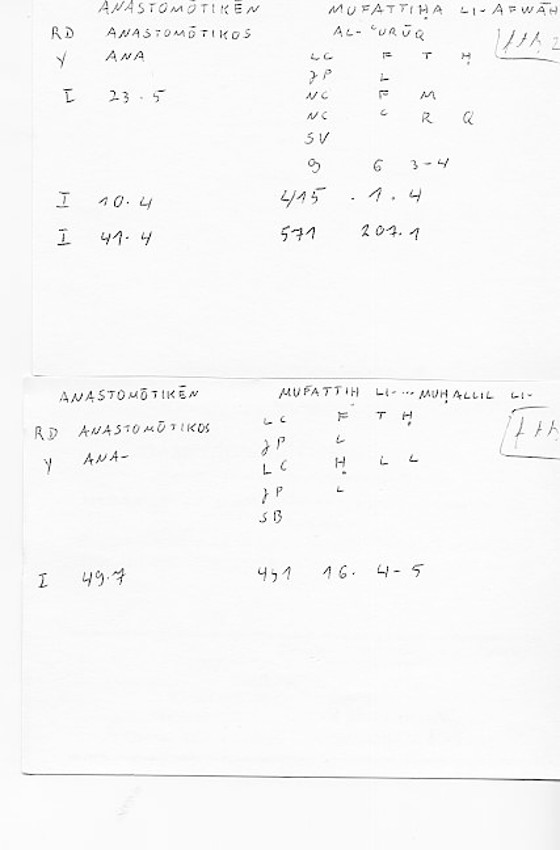 ANASTOMŌTIKĒN MUFATTIḤA LI-AFWĀH
RD ANASTOMŌTIKOS AL-ʿURŪQ
Y ANA LC F T Ḥ
JP L
I 23.5 NC F M
NC ʿ R Q
SV
9 6 3-4
I 10.4 415 .1.4
I 41.4 571 207.1
ANASTOMŌTIKĒN MUFATTIḤ LI-... MUḤALLIL LI-
RD ANASTOMŌTIKOS LC F T Ḥ
JP L
Y ANA- LC Ḥ L L
JP L
SB
I 49.7 451 16. 4-5